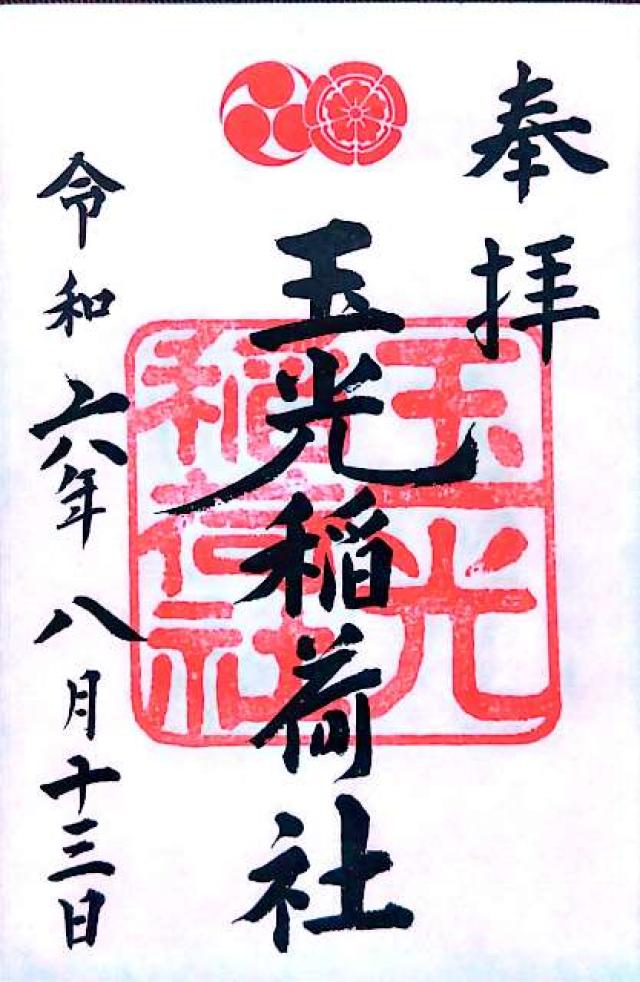 奉拝
玉光稲荷社
玉光
稲荷社
令和六年八月十三日